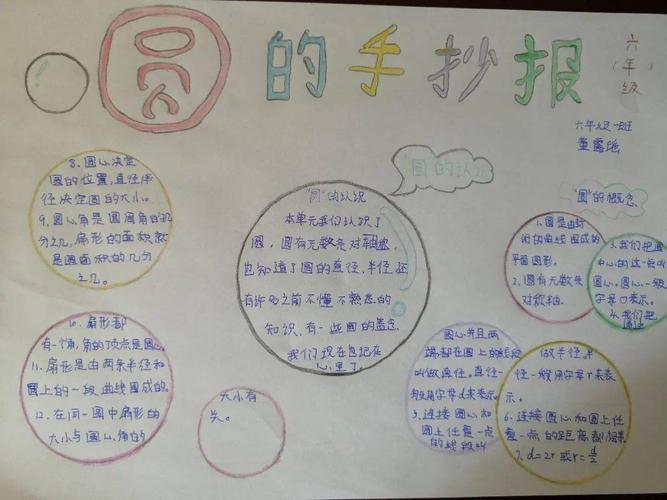 圆的手抄报
六(年)级
六年级一班
"圆"的认识
"圆"的概念
8、圆心决定
圆的位置,直径半
径决定圆的大小。
9、圆心角是圆周角的几
分之几,扇形的面积就
是圆面积的几分
之几。
"圆"的认识
本单元我们认识了
圆,圆有无数条对轴线,
也知道了圆的直径、半径,还
有许多之前不懂不熟悉的
知识,有一些圆的概念,
我们现在也记在
心里了。
1、圆是由封
闭的曲线围成的
平面图形。
2、圆有无数条
对称轴。
3、我们把圆
中心的这一点叫
圆心。圆心一般
字母O表示。
4、我们把
通过
圆心并且两
端都在圆上的线段
叫做直径。直径一
般用字母d来表示。
5、连接圆心和
圆上任意一点
的线段叫
做半径,半
径一般用字母r来表
示。
6、连接圆心和圆上任
意一点的距离都相等。
7、d=2r或r=d/2
10、扇形都
有一个角,角的顶点是圆心。
11、扇形是由两条半径和
圆上的一段曲线围成的。
12、在同一圆中扇形的
大小与圆心角的
大小有
关。